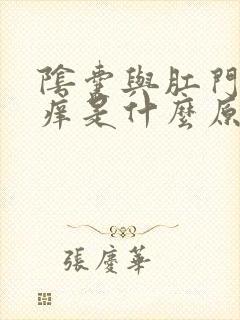 陰囊與肛門
痒是什麼原
張慶華